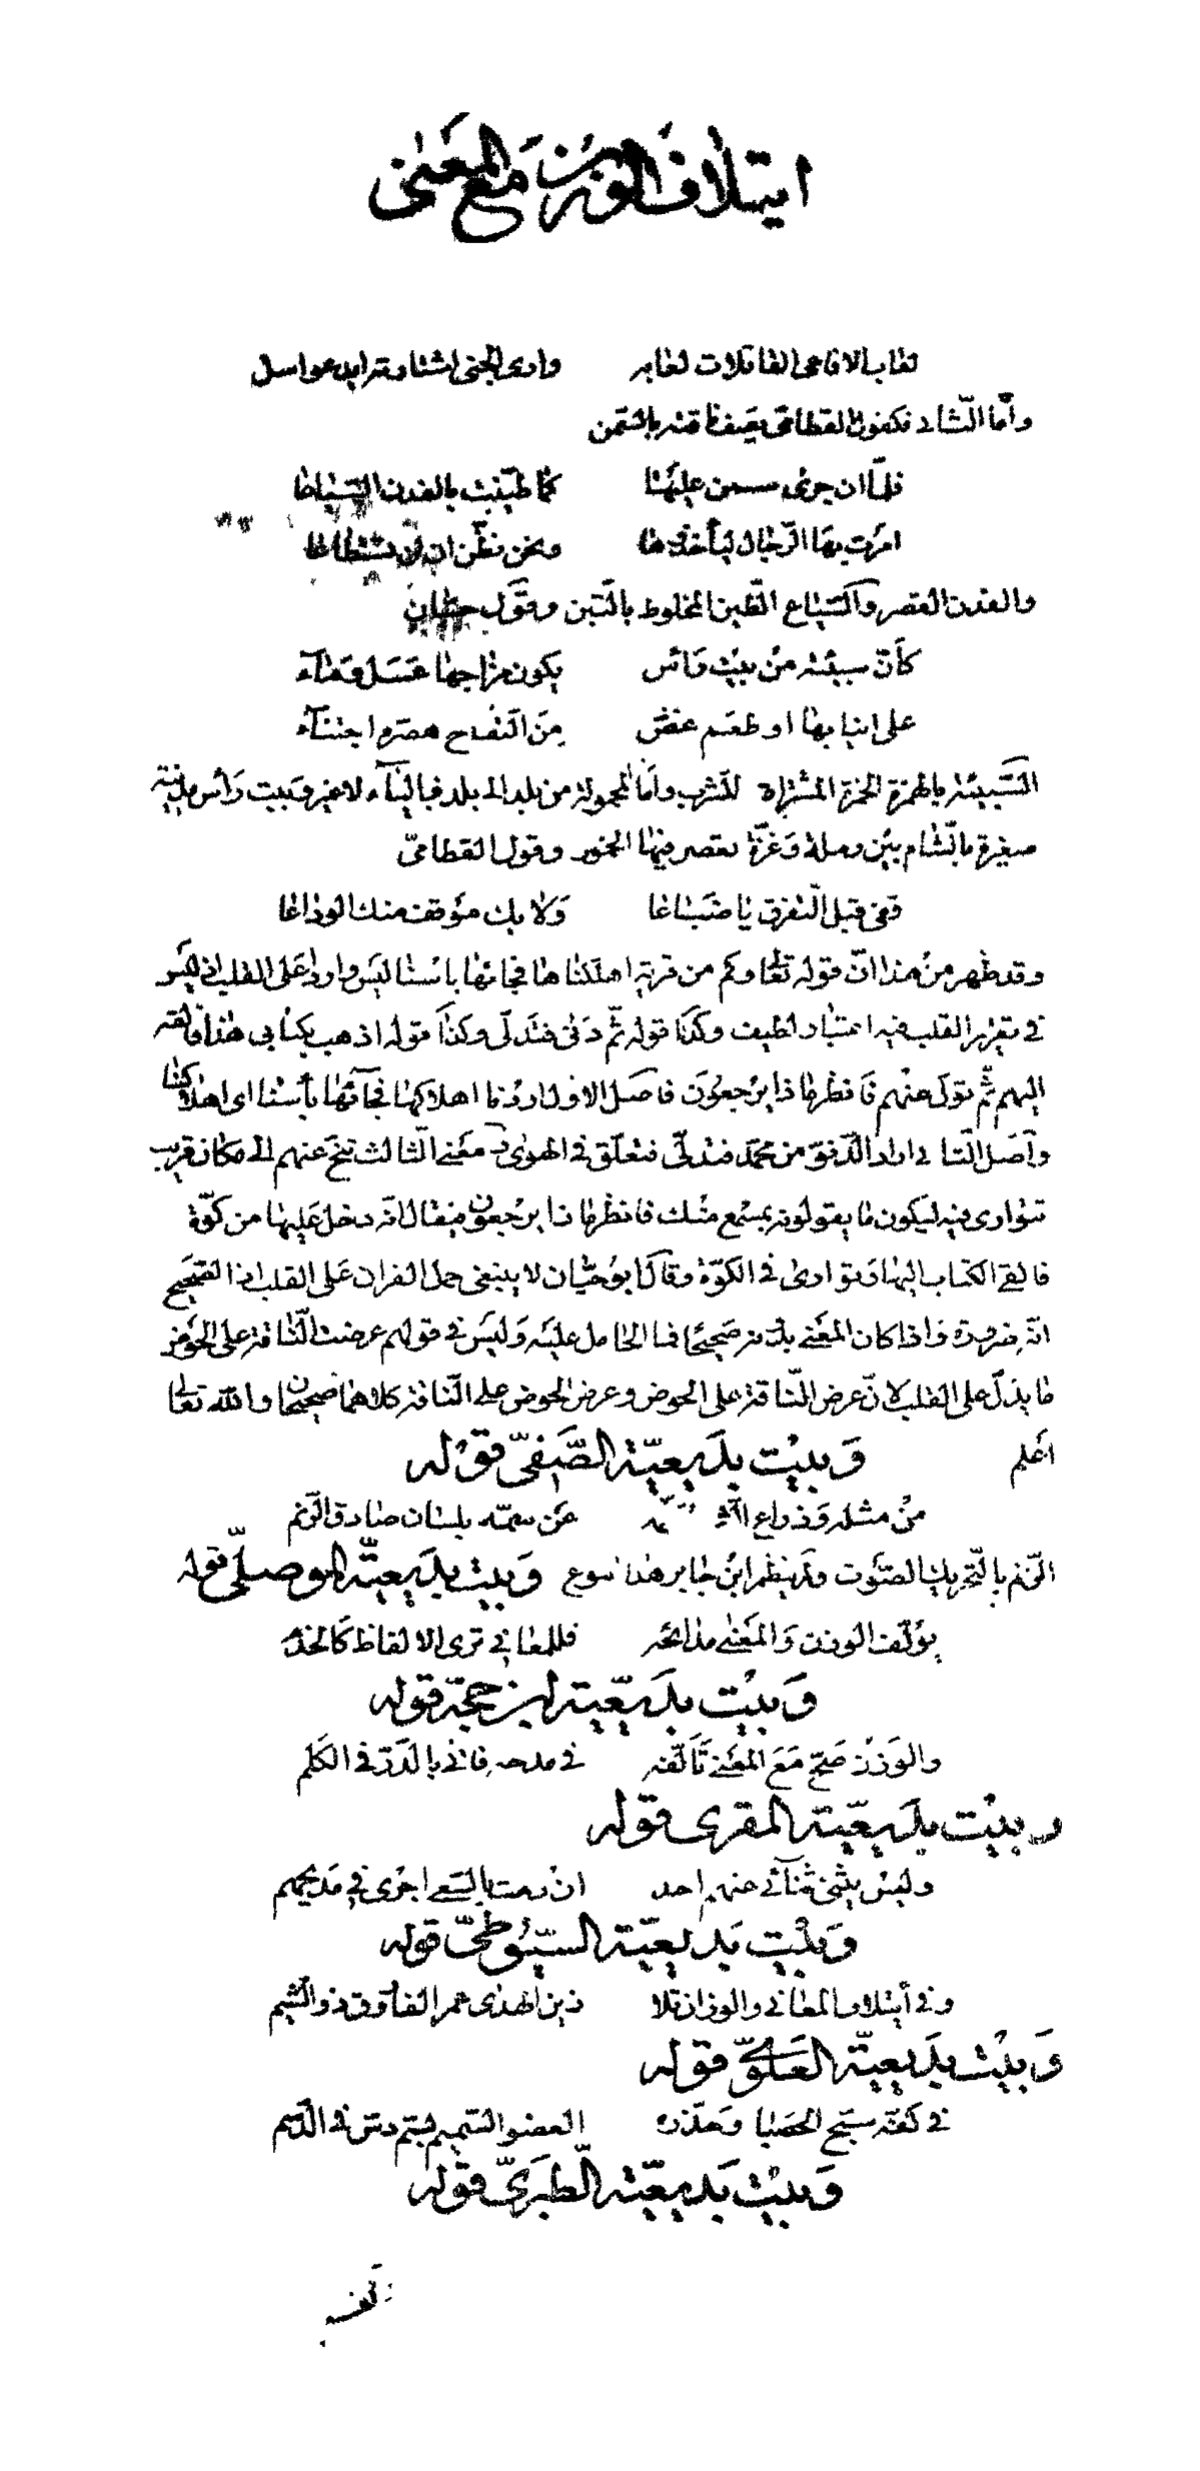 ايتلاف الوزن مع المعنى
لعاب الافاعى القاتلات لعابه وارى الجنى اشتارته ايد عواسل
وأما الثانى فكقول القطامى يصف ناقته بالسمن
فلما ان جرى سمن عليها كما طينت بالفدن السياعا
امرت بها الرجال ليأخذوها ونحن نظن ان لن تستطاعا
والفدن القصر والسياع الطين المخلوط بالتبن وقول حسان
كأن سبيئة من بيت رأس يكون مزاجها عسل وماء
على انيابها او طعم غض من التفاح هصره اجتناء
السبيئة بالهمزة الخمرة المشتراة للشرب وأما المحمولة من بلد الى بلد فبالياء لا غير وبيت رأس مدينة
صغيرة بالشام بين رملة وغزة يعصر فيها الخمور وقول القطامى
قفى قبل التفرق يا ضباعا ولا يك موقف منك الوداعا
وقد ظهر من هذا ان قوله تعالى وكم من قرية اهلكناها فجائها باسنا ليس واردا على القلب اذ ليس
فى تقرير القلب فيه اعتبار لطيف وكذا قوله ثم دنى فتدلى وكذا قوله اذهب بكتابى هذا فالقه
اليهم ثم تول عنهم فانظر ماذا يرجعون فاصل الاول اردنا اهلاكها فجائها بأسنا اى اهلاكنا
واصل الثانى اراد الدنو من محمد فتدلى فتعلق فى الهوى ومعنى الثالث تنح عنهم الى مكان قريب
تتوارى فيه ليكون ما يقولونه بمسمع منك فانظر ماذا يرجعون فيقال انه دخل عليها من كوة
فالقى الكتاب اليها وتوارى فى الكوة وقال ابو حيان لا ينبغى حمل القران على القلب اذ الصحيح
انه ضرورة واذا كان المعنى بدونه صحيحا فما الحامل عليه وليس فى قولهم عرضت الناقة على الحوض
ما يدل على القلب لان عرض الناقة على الحوض وعرض الحوض على الناقة كلاهما صحيحان والله تعالى
اعلم وبيت بديعية الصفى قوله
من مثله وذراع الشاة عن سمه بلسان صادق الرنم
الرنم بالتحريك الصوت ولم ينظم ابن جابر هذا النوع وبيت بديعية الموصلى قوله
يؤلف الوزن والمعنى مدائحه فللمعانى ترى الالفاظ كالخدم
وبيت بديعية ابن حجة قوله
والوزن صح مع المعنى تألفه فى مدحه فاتى بالدر فى الكلم
وبيت بديعية المقرى قوله
وليس يثنى ثنائى عنهم احد ان رمت بالسعى اجرى فى مديحهم
وبيت بديعية السيوطى قوله
وفى أيتلاف المعانى والوزان تلا ذين الهدى عمر الفاروق ذو الشيم
وبيت بديعية العلوى قوله
فى كفه سبح الحصبا العضو السميم فى الدسم
وبيت بديعية الطبرى قوله